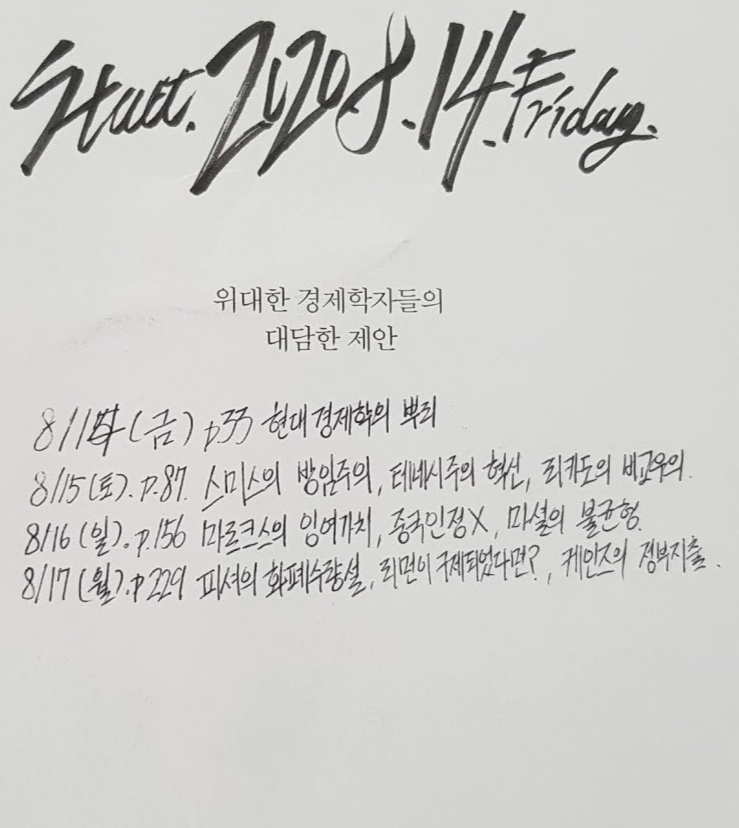 Start. 2020.8.14. Friday.
위대한 경제학자들의
대담한 제안
8/14 (금) p33 현대경제학의 뿌리
8/15 (토). p.87. 스미스의 방임주의, 테네시주의 혁신, 리카도의 비교우위.
8/16 (일). p.156 마르크스의 잉여가치, 중국인정X, 마셜의 불균형.
8/17 (월). p229 피셔의 화폐수량설, 리먼이 구제되었다면?, 케인즈의 정부지출.